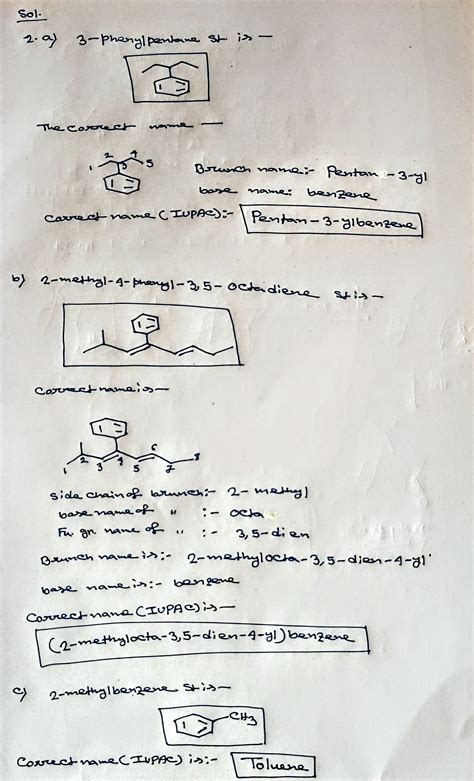 Sol.
2. a) 3-phenylpentane st is -
The correct name -
1 2 3 4 5
Branch name:- Pentan-3-yl
base name: benzene
Correct name (IUPAC):- Pentan-3-ylbenzene
b) 2-methyl-4-phenyl-3,5-octadiene st is -
Correct name is -
1 2 3 4 5 6 7 8
Side chain of branch:- 2-methyl
base name of " :- octa
Fu gr name of " :- 3,5-dien
Branch name is:- 2-methylocta-3,5-dien-4-yl
base name is:- benzene
Correct name (IUPAC) is -
(2-methylocta-3,5-dien-4-yl) benzene
c) 2-methylbenzene st is -
CH3
Correct name (IUPAC) is:- Toluene